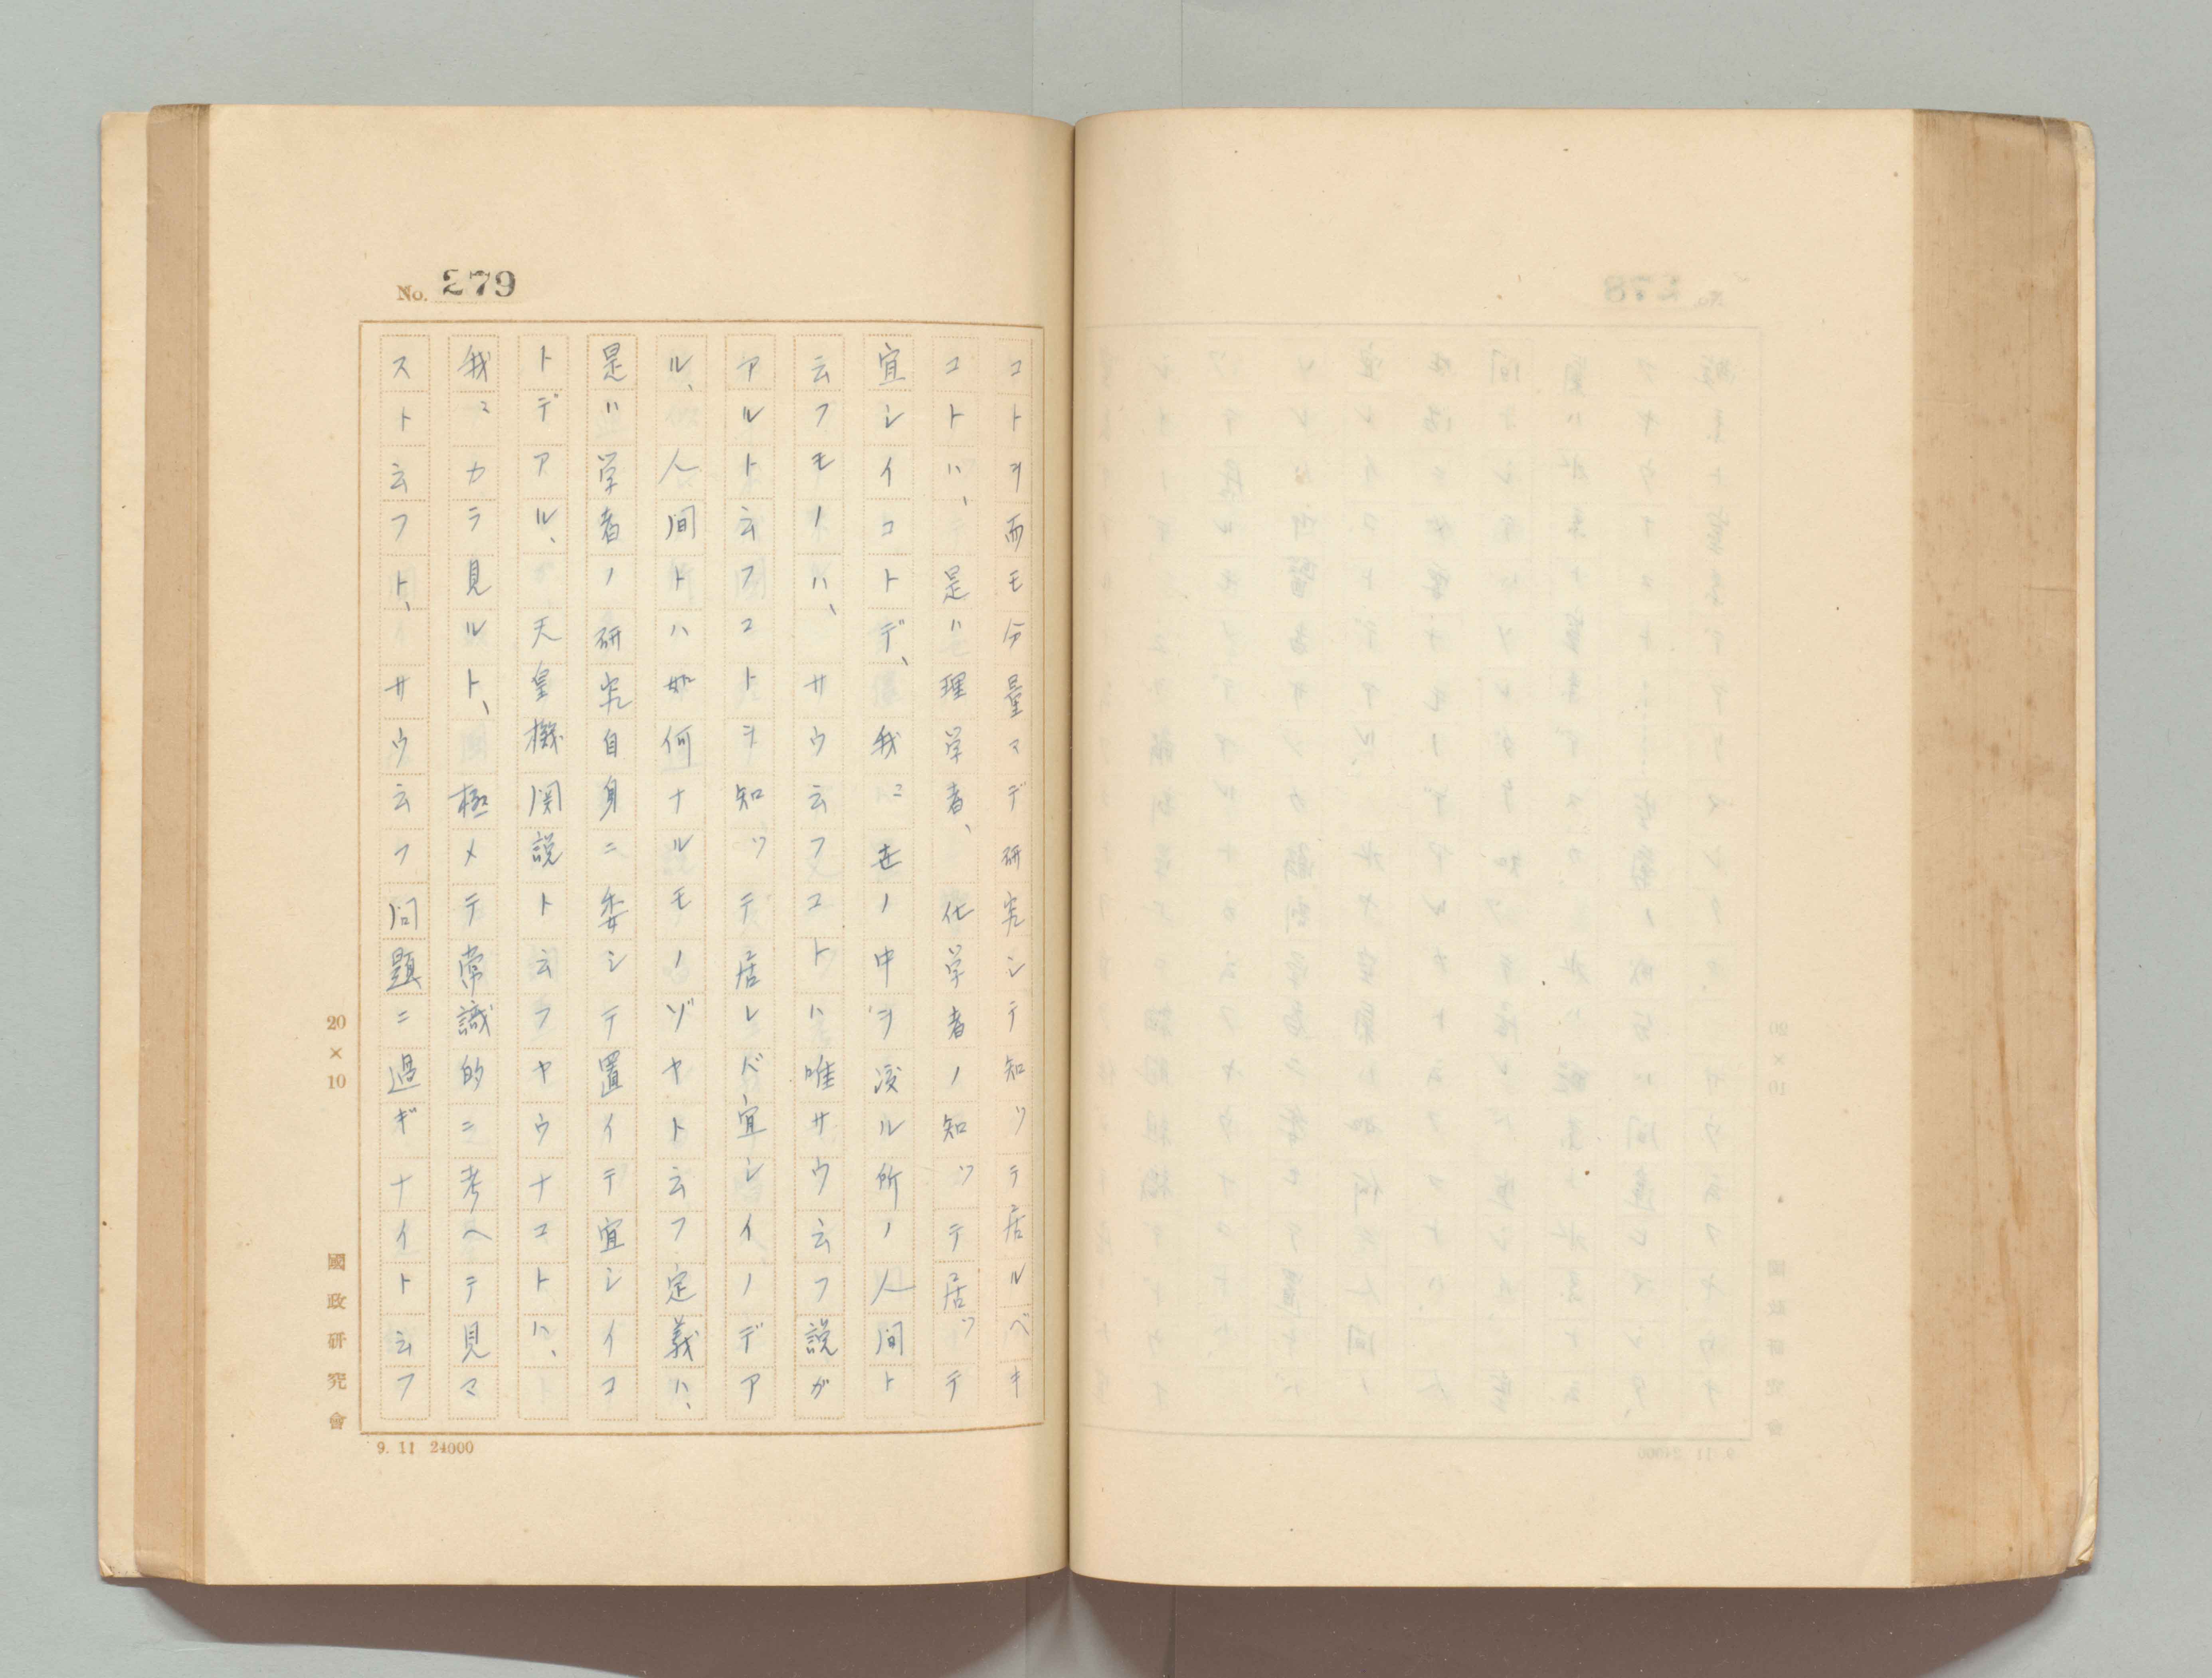 No. 279
コトヲ而モ分量マデ研究シテ知ッテ居ルベキ
コトハ、是ハ理学者、化学者ノ知ッテ居ッテ
宜シイコトデ、我々世ノ中ヲ渡ル所ノ人間ト
云フモノハ、サウ云フコトハ唯サウ云フ説ガ
アルト云フコトヲ知ッテ居レバ宜シイノデア
ル、人間トハ如何ナルモノゾヤト云フ定義ハ、
是ハ学者ノ研究自身ニ委シテ置イテ宜シイコ
トデアル、天皇機関説ト云フヤウナコトハ、
我々カラ見ルト、極メテ常識的ニ考ヘテ見マ
スト云フト、サウ云フ問題ニ過ギナイト云フ
20×10
國政研究會
9. 11 24000